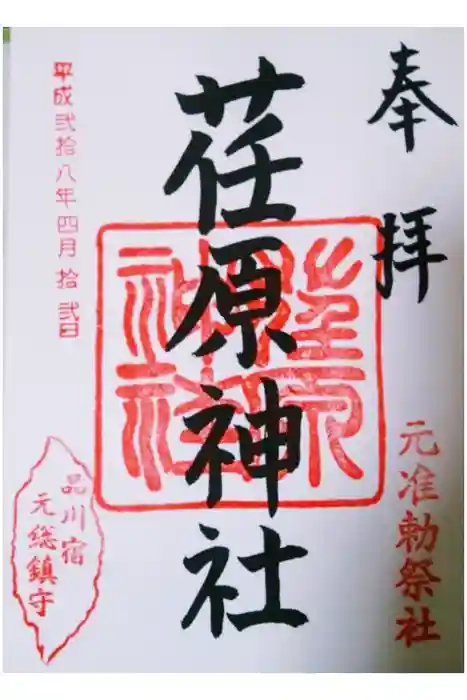 奉拝
元准勅祭社
荏原神社
平成弐拾八年四月拾弐日
品川宿
元総鎮守